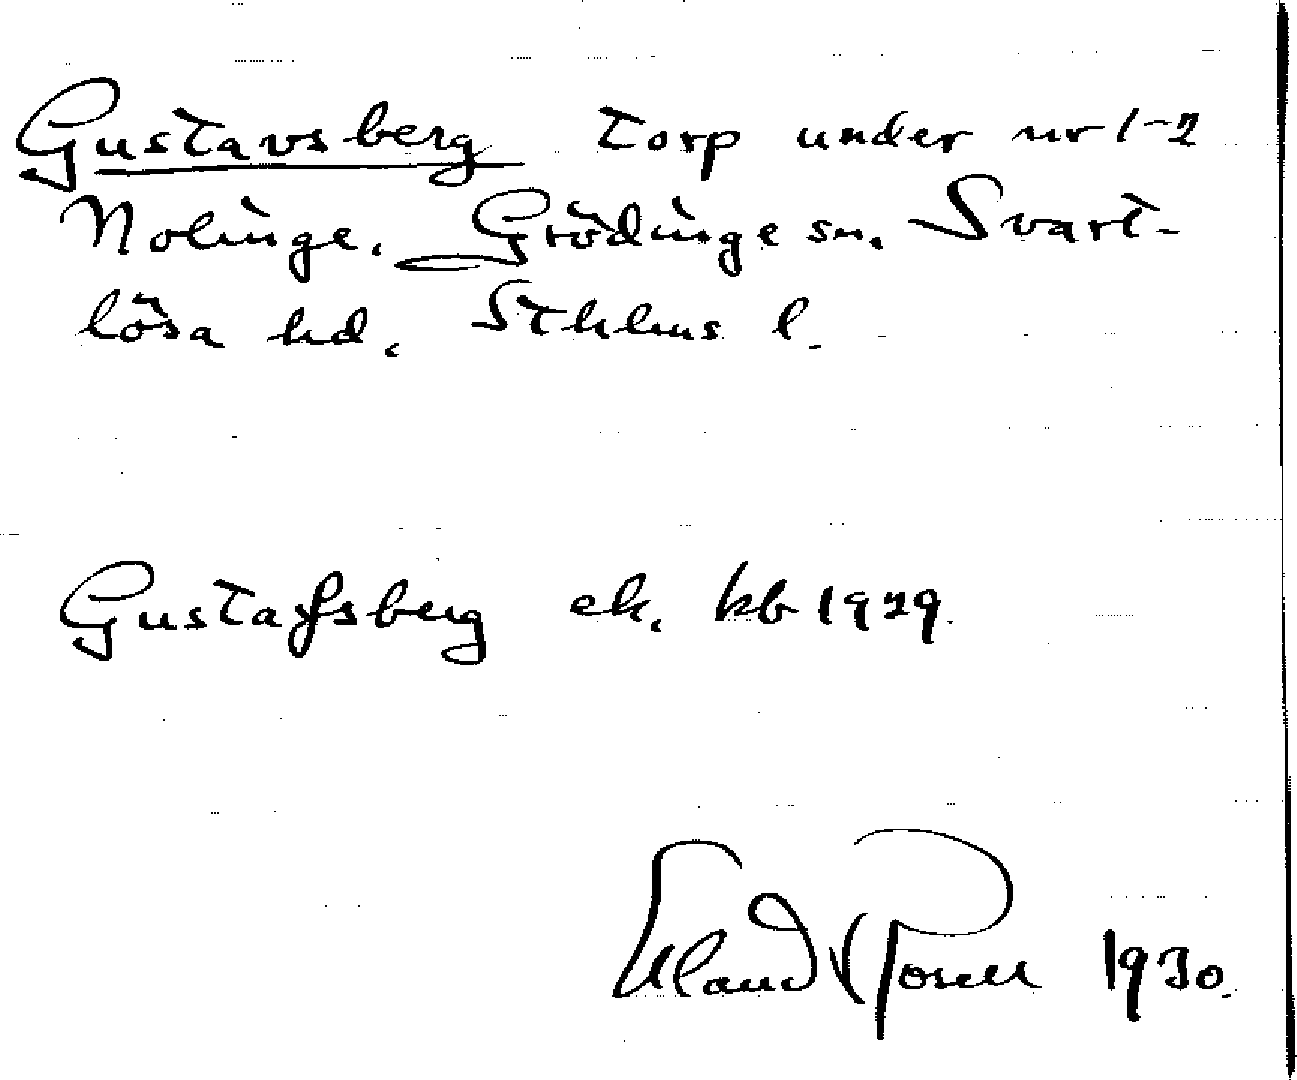 Gustavsberg torp under nr 1-2
Nolinge. Grödinge sn. Svart-
lösa hd. Sthlms l.
Gustafsberg ek. kb 1929.
Erland Rosell 1930.